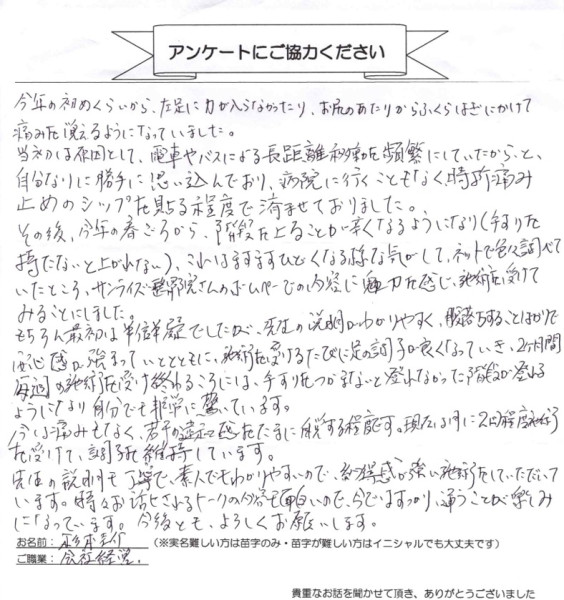 アンケートにご協力ください
今年の初めくらいから、左足に力が入らなかったり、お尻のあたりからふくらはぎにかけて
痛みを覚えるようになっていました。
当初は原因として、電車やバスによる長距離移動を頻繁にしていたから、と、
自分なりに勝手に思い込んでおり、病院に行くこともなく、時折痛み
止めのシップを貼る程度で済ませておりました。
その後、今年の春ごろから、階段を上ることが辛くなるようになり(手すりを
持たないと上がれない)、これはますますひどくなる様な気がして、ネットで色々調べて
いたところ、サンライズ整骨院さんのホームページの内容に魅力を感じ、施術を受けて
みることにしました。
もちろん最初は半信半疑でしたが、先生の説明がわかりやすく、腹落ちすることばかりで
安心感が強まっていくとともに、施術を受けるたびに足の調子が良くなっていき、2ヶ月間
毎週の施術を受け終わるころには、手すりをつかまないと登れなかった階段が登れる
ようになり自分でも非常に驚いています。
今は痛みもなく、若干の違和感をたまに自覚する程度です。現在は月に2回程度施術
を受けて、調子を維持しています。
先生の説明も丁寧で、素人でもわかりやすいので、納得感が強い施術をしていただいて
います。時々お話されるトークの内容も面白いので、今ではすっかり、通うことが楽しみ
になっています。今後とも、よろしくお願いします。
お名前： (※実名難しい方は苗字のみ・苗字が難しい方はイニシャルでも大丈夫です)
ご職業： 会社経営.
貴重なお話を聞かせて頂き、ありがとうございました